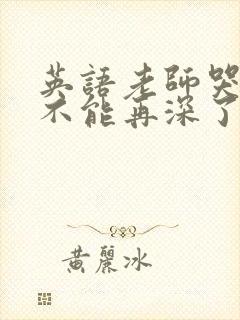 英語老師哭
不能再深了
黃麗冰